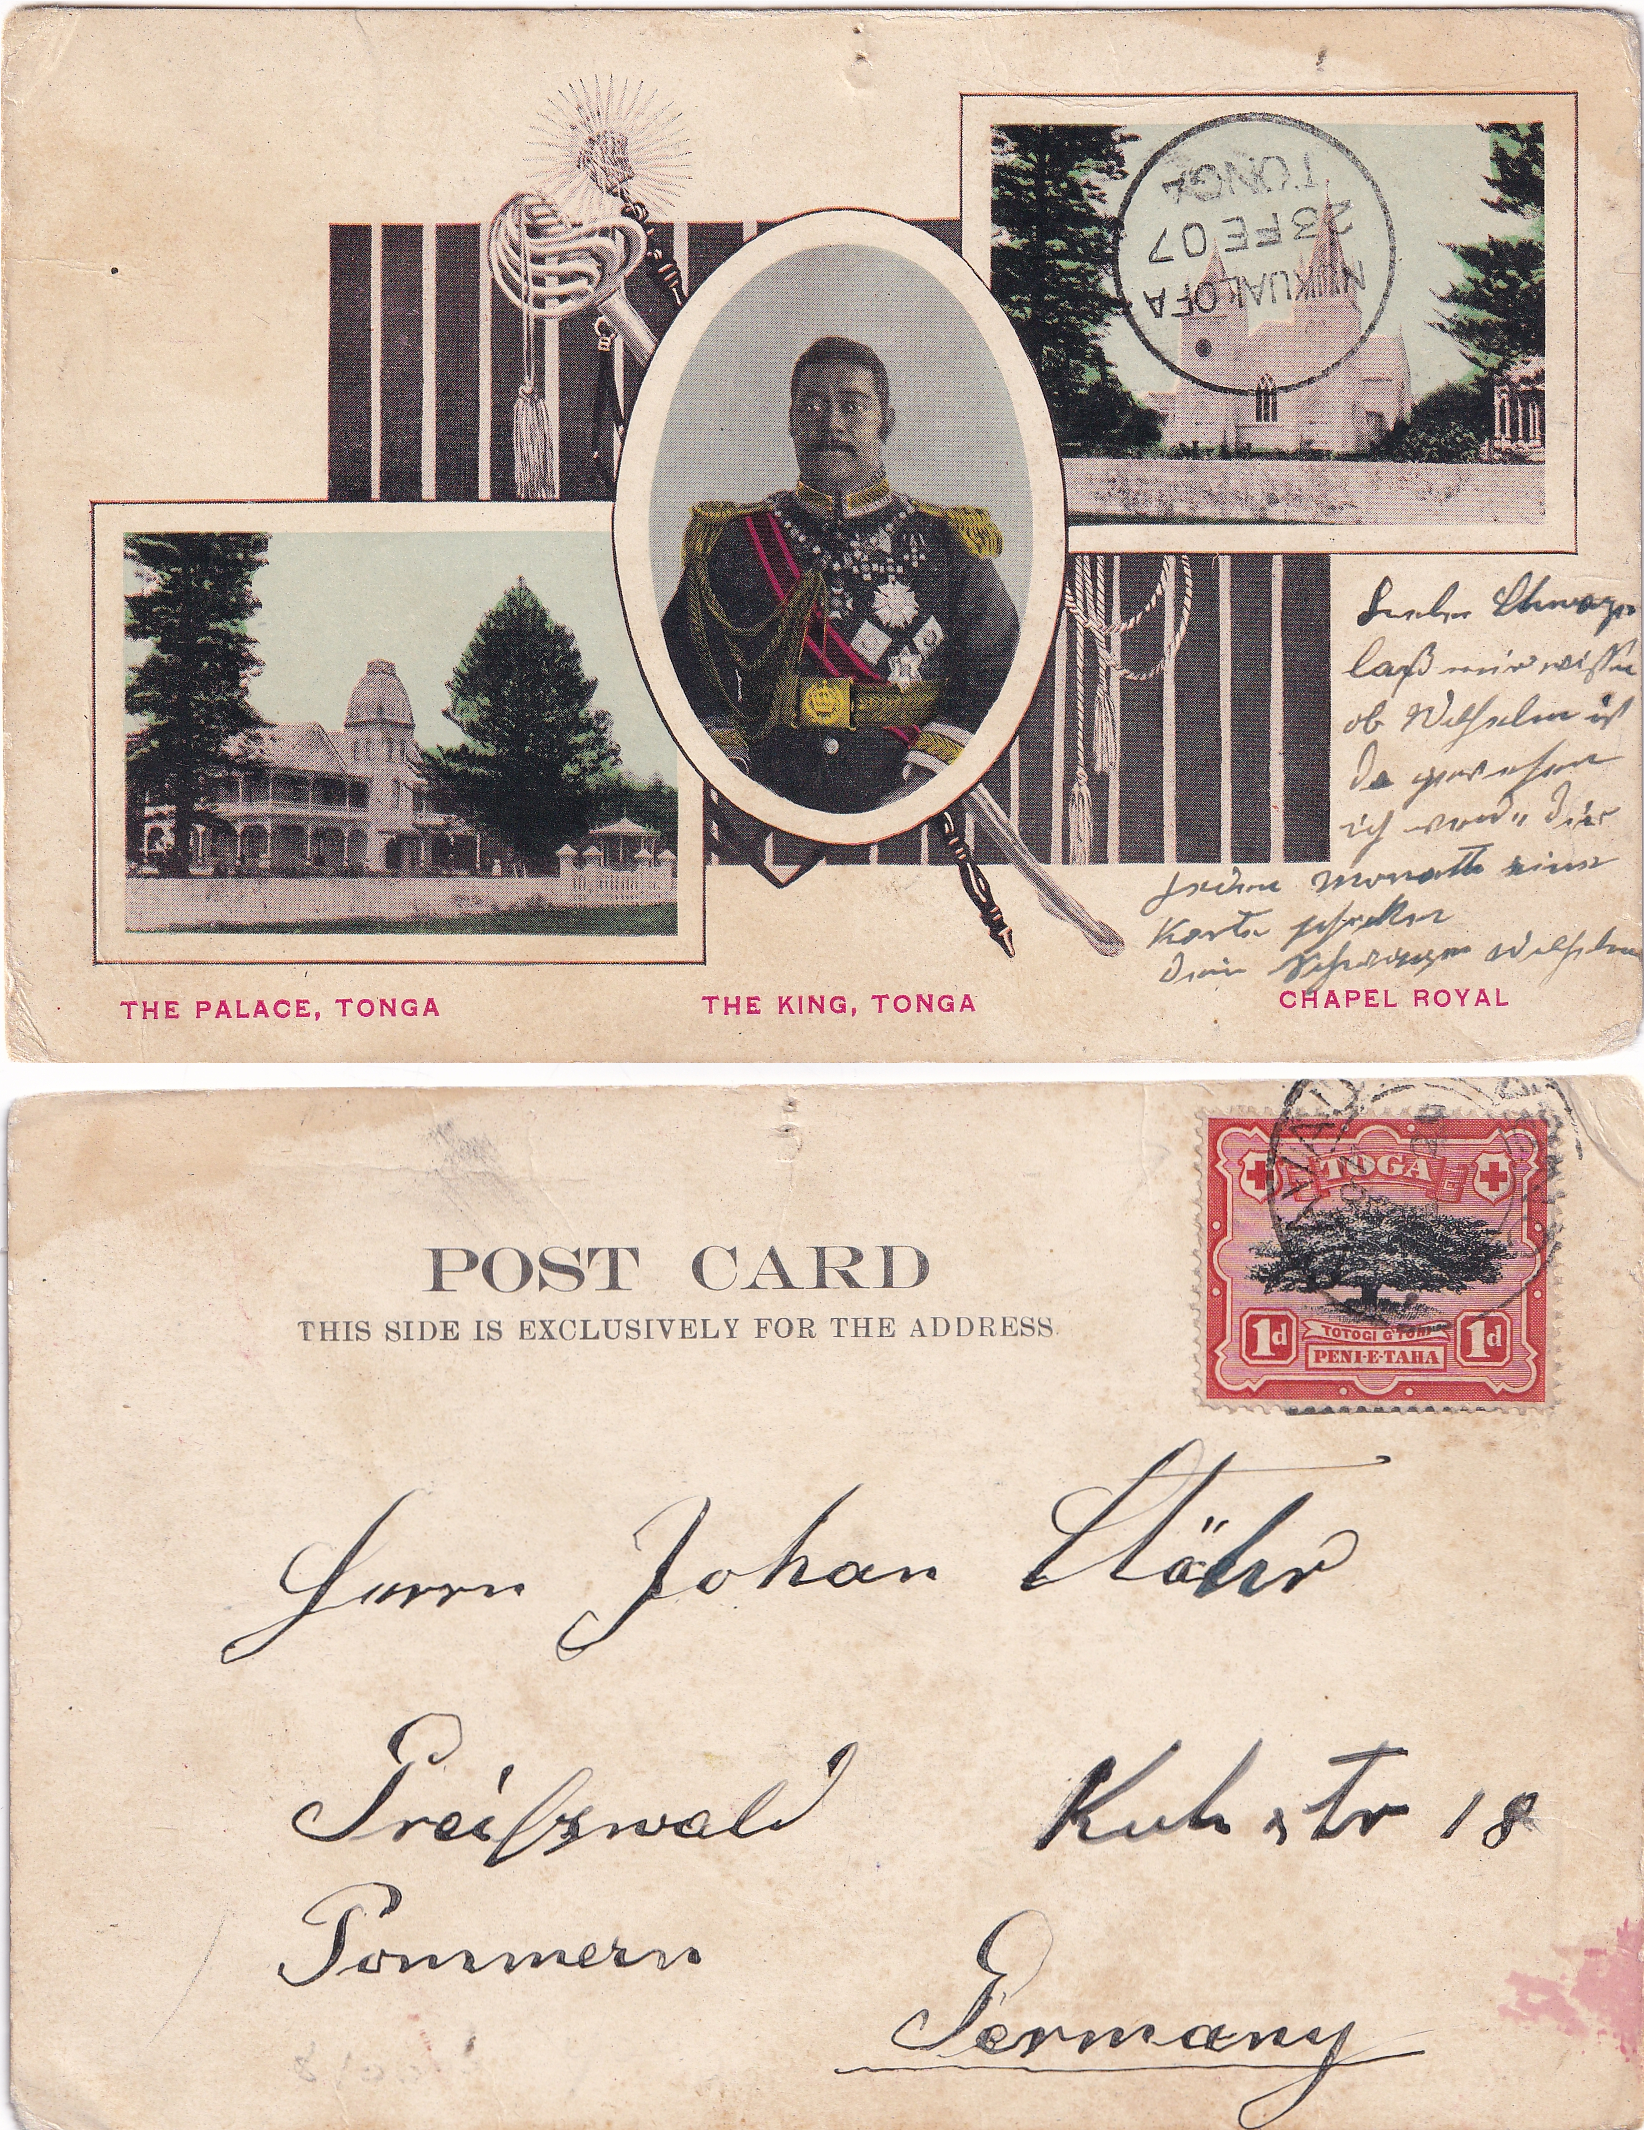 TONGA
23 FE 07
NUKUALOFA
Lieber Schwager
laß mir wissen
ob Wilhelm ist
da gewesen
ich werd Dir
jeden Monath eine
Karte schicken
Dein Schwager Wilhelm
THE PALACE, TONGA
THE KING, TONGA
CHAPEL ROYAL
POST CARD
THIS SIDE IS EXCLUSIVELY FOR THE ADDRESS
TOGA
1d
TOTOGI
1d
PENI-E-TAHA
Herrn Johan Stöhr
Greifswald Kuhstr 18
Pommern
Germany